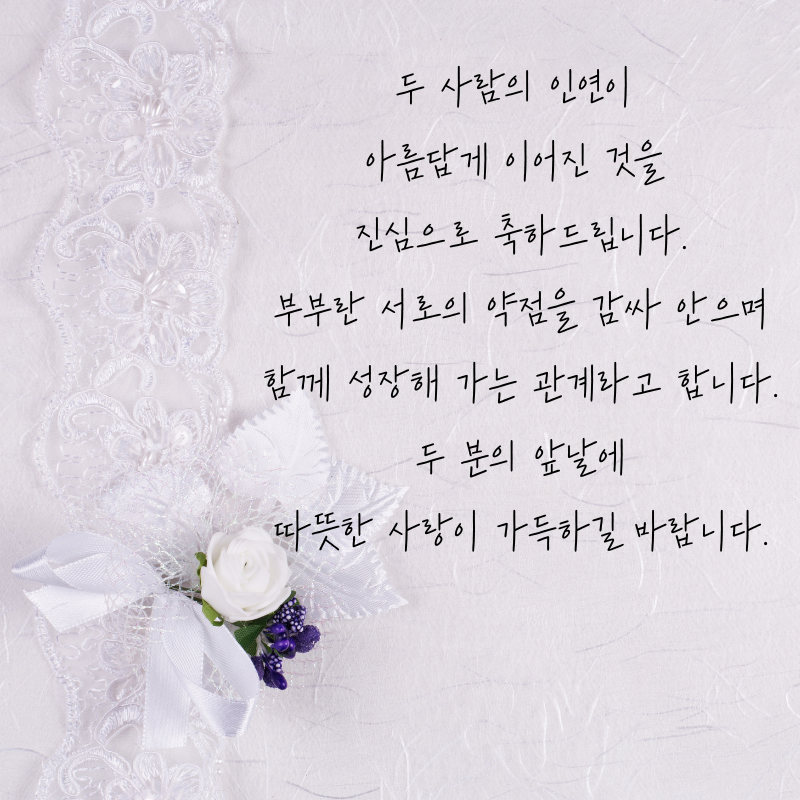 두 사람의 인연이
아름답게 이어진 것을
진심으로 축하드립니다.
부부란 서로의 약점을 감싸 안으며
함께 성장해 가는 관계라고 합니다.
두 분의 앞날에
따뜻한 사랑이 가득하길 바랍니다.